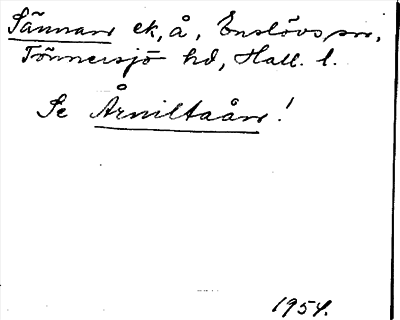 Sännan ek, å, Enslövs sn,
Tönnersjö hd, Hall. l.
Se Årniltaån!
1954.